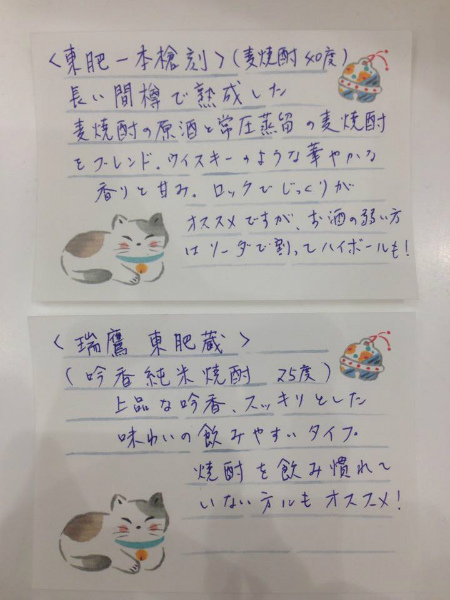 <東肥一本槍刻>(麦焼酎40度)
長い間樽で熟成した
麦焼酎の原酒と常圧蒸留の麦焼酎
をブレンド。ウイスキーのような華やかな
香りと甘み。ロックでじっくりが
オススメですが、お酒の弱い方
はソーダで割ってハイボールも!
<瑞鷹 東肥蔵>
(吟香純米焼酎 25度)
上品な吟香、スッキリとした
味わいの飲みやすいタイプ。
焼酎を飲み慣れて
いない方にもオススメ!